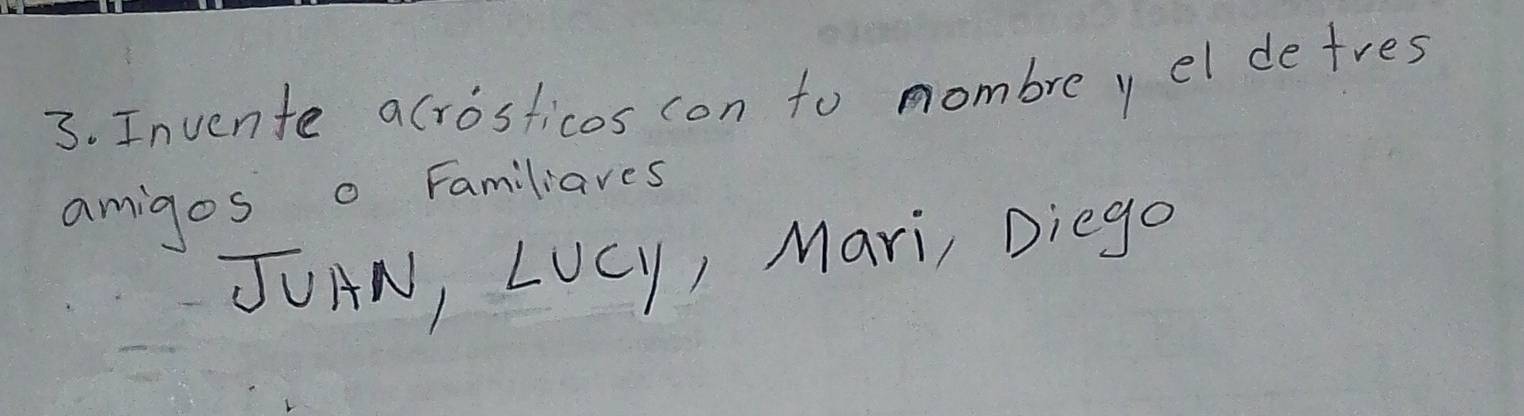 3. Invente acrósticos con tu nombre y el de tres
amigos o Familiares
JUAN, LUCY, Mari, Diego